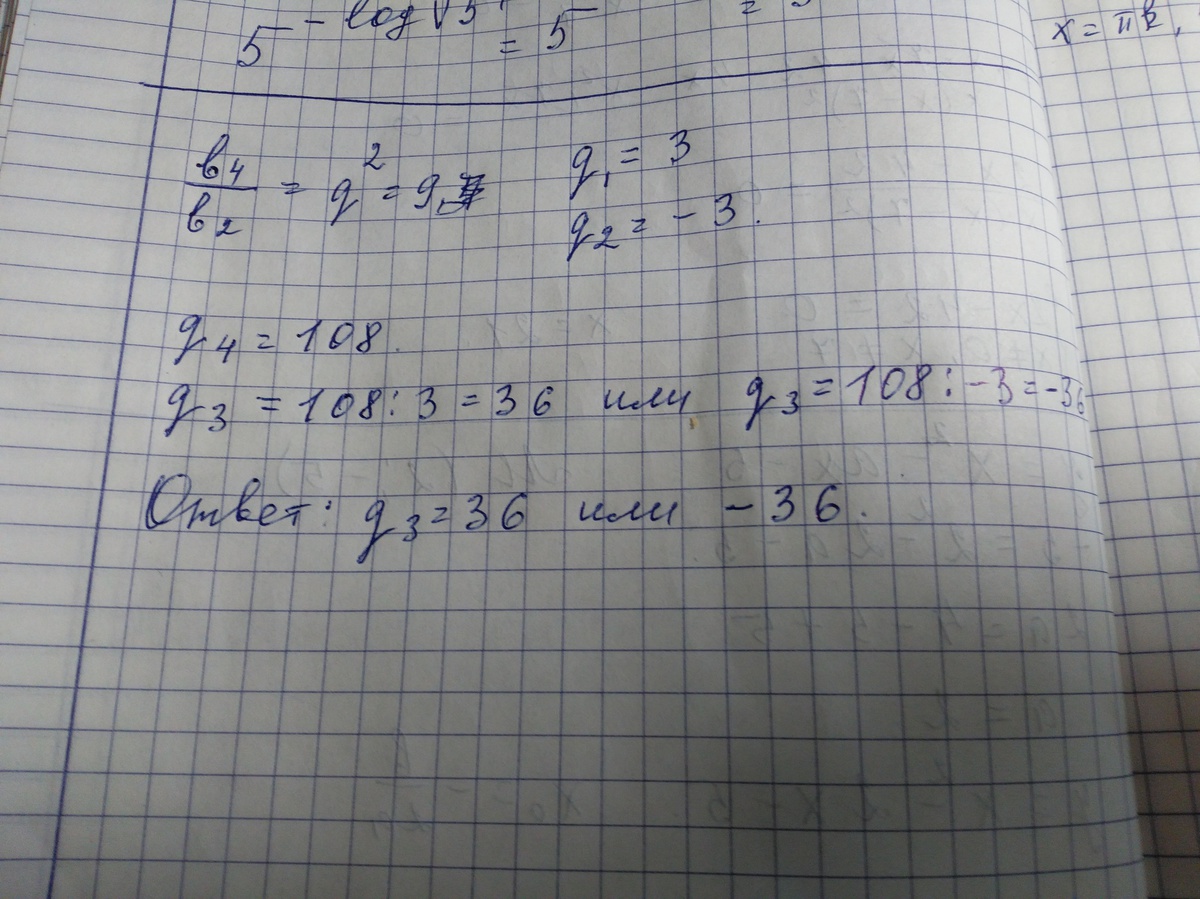 5^(-log√5 = 5 = 5
x = πk,
в₄/в₂ = q² = 9, q₁ = 3
q₂ = -3.
q₄ = 108.
q₃ = 108 : 3 = 36 или q₃ = 108 : -3 = -36
Ответ: q₃ = 36 или -36.